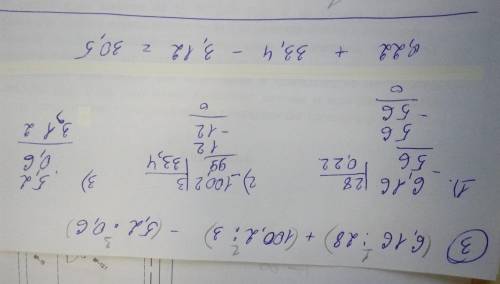 ③ (6,16 : 28) + (100,2 : 3) - (5,2 · 0,6)
1 2 3
1). 6,16 | 28
56 0,22
56
- 56
0
2) 100,2 | 3
99 33,4
12
- 12
0
3) 5,2
0,6
3,12
0,22 + 33,4 - 3,12 = 30,5